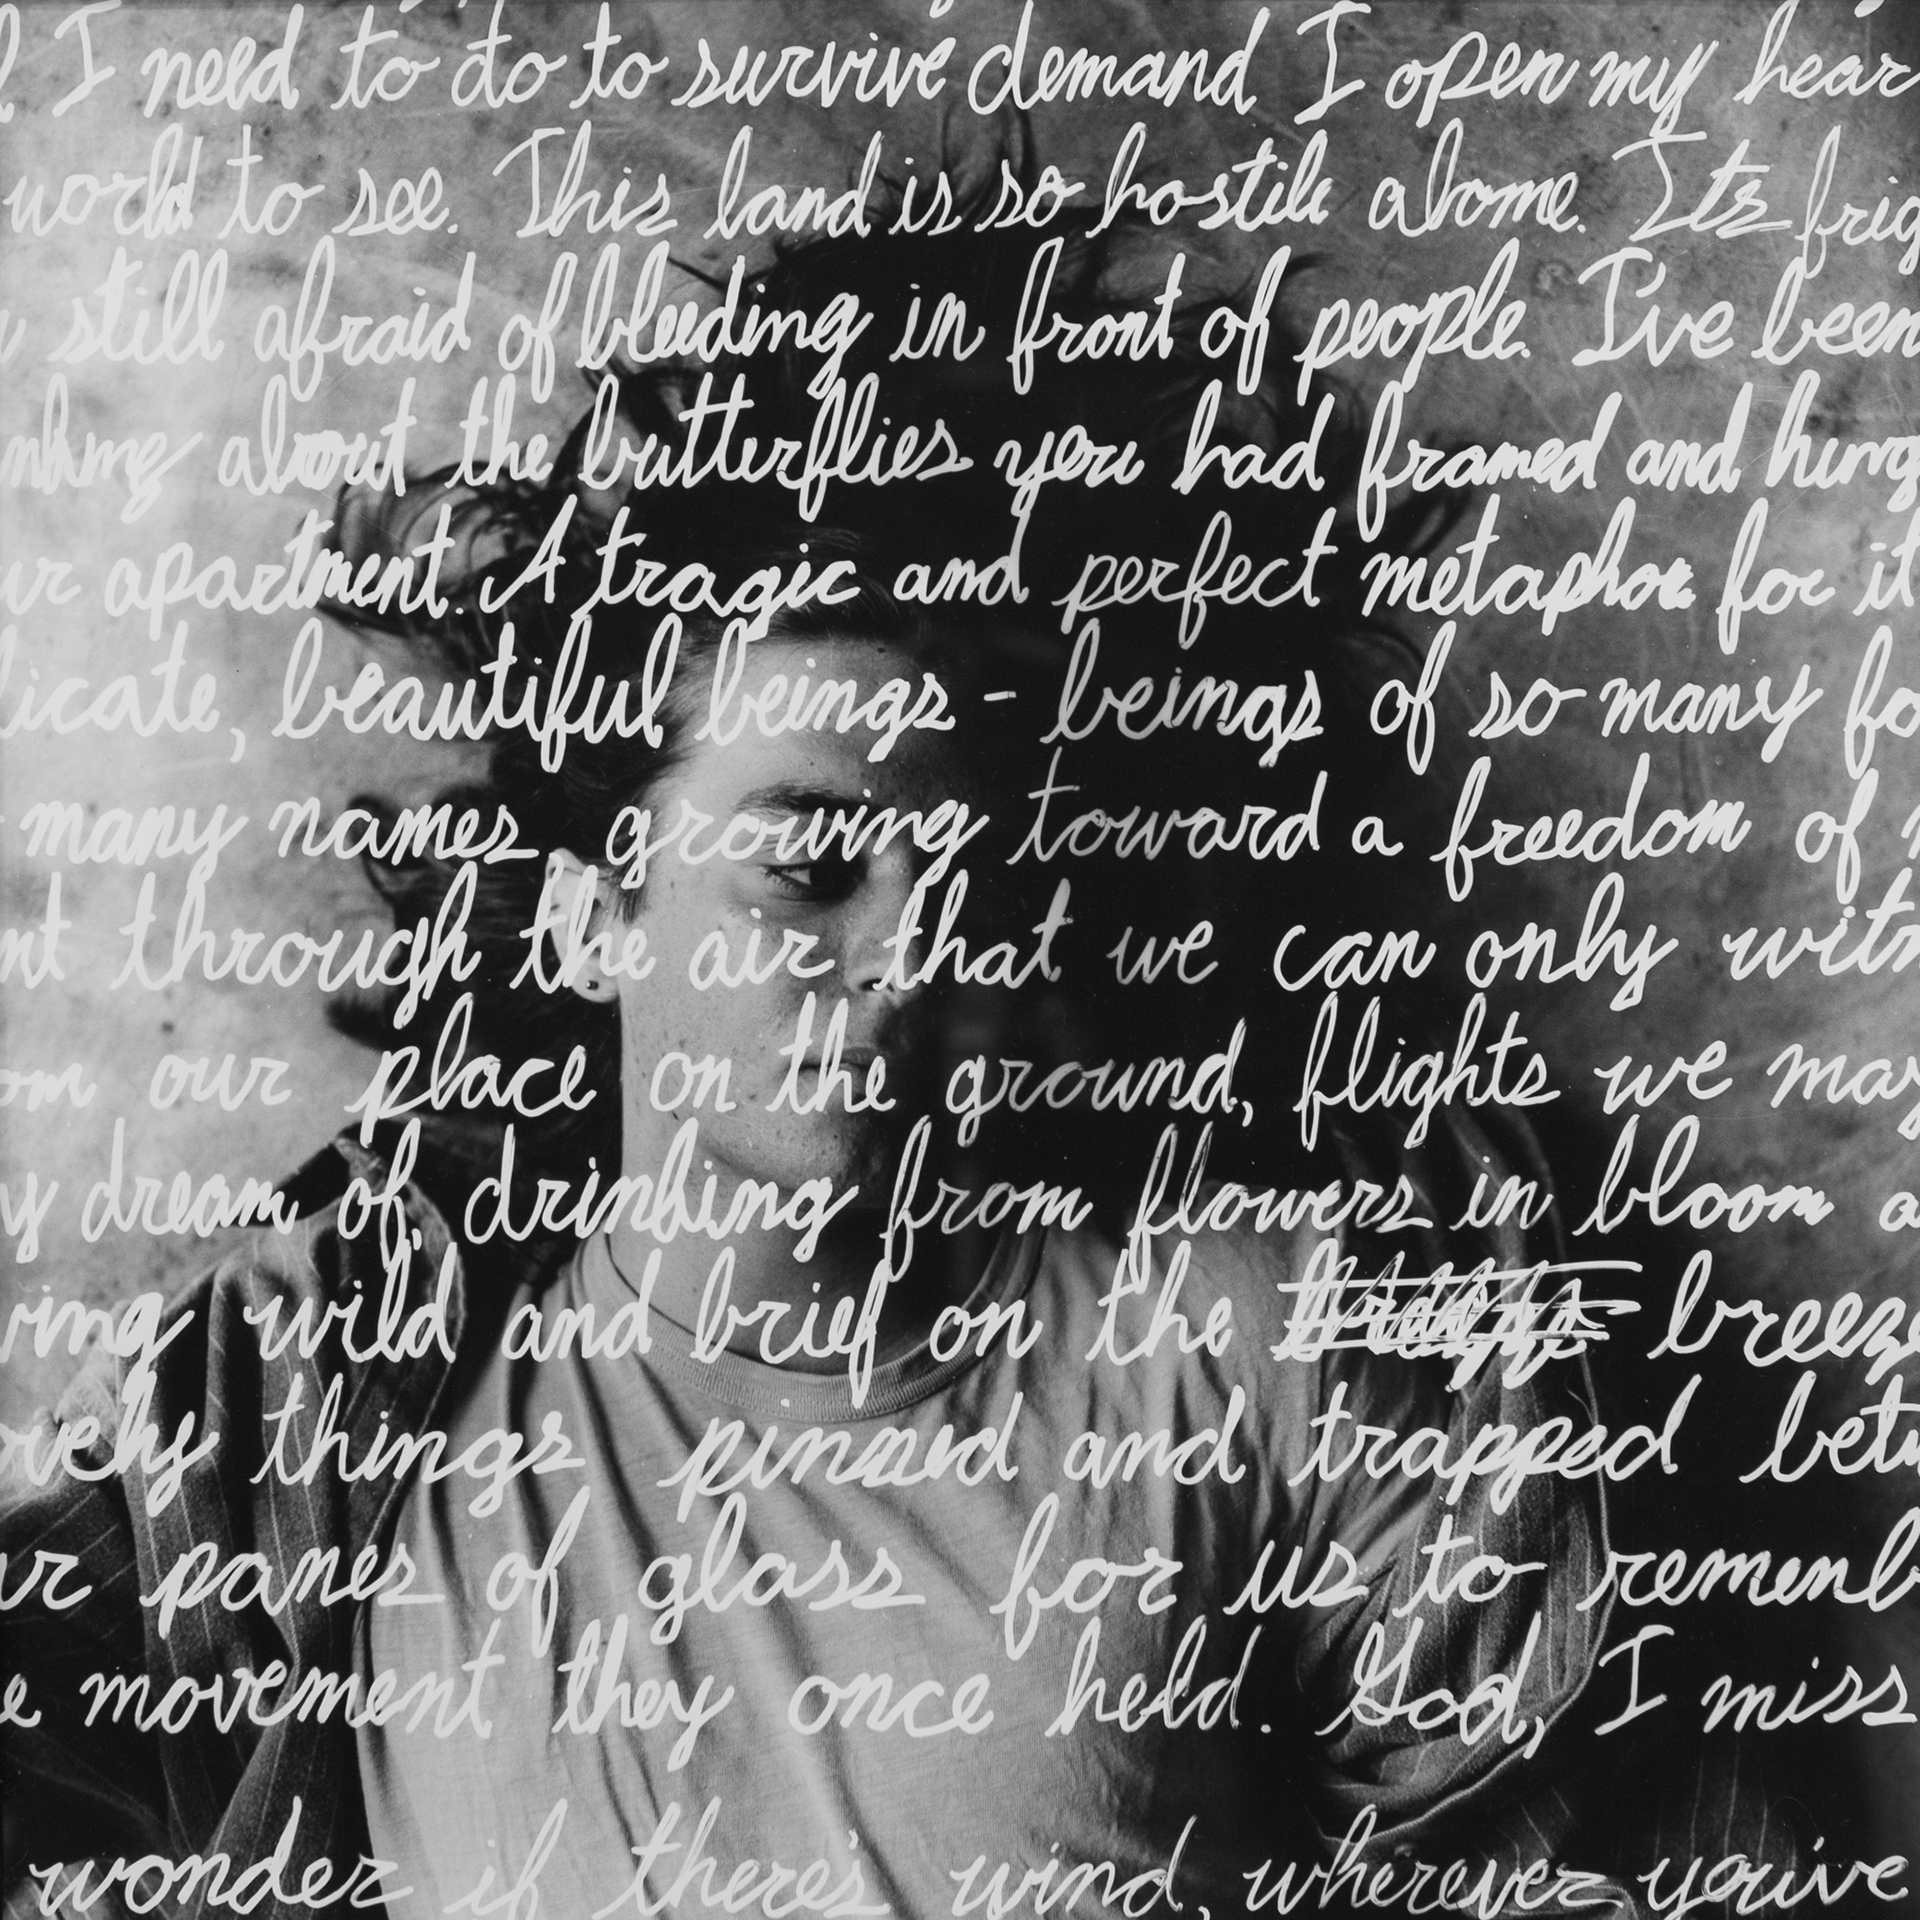 I need to do to survive demand I open my hear
world to see. This land is so hostile alome. Its frig
still afraid of bleeding in front of people. I've been
about the butterflies you had framed and hung
ur apartment. A tragic and perfect metaphor for it
licate, beautiful beings - beings of so many fo
many names growing toward a freedom of
nt through the air that we can only witn
om our place on the ground, flights we may
y dream of, drinking from flowers in bloom a
ving wild and brief on the breeze
ovely things pinned and trapped betw
ur panes of glass for us to rememb
e movement they once held. God, I miss
wonder if there's wind, wherever you've